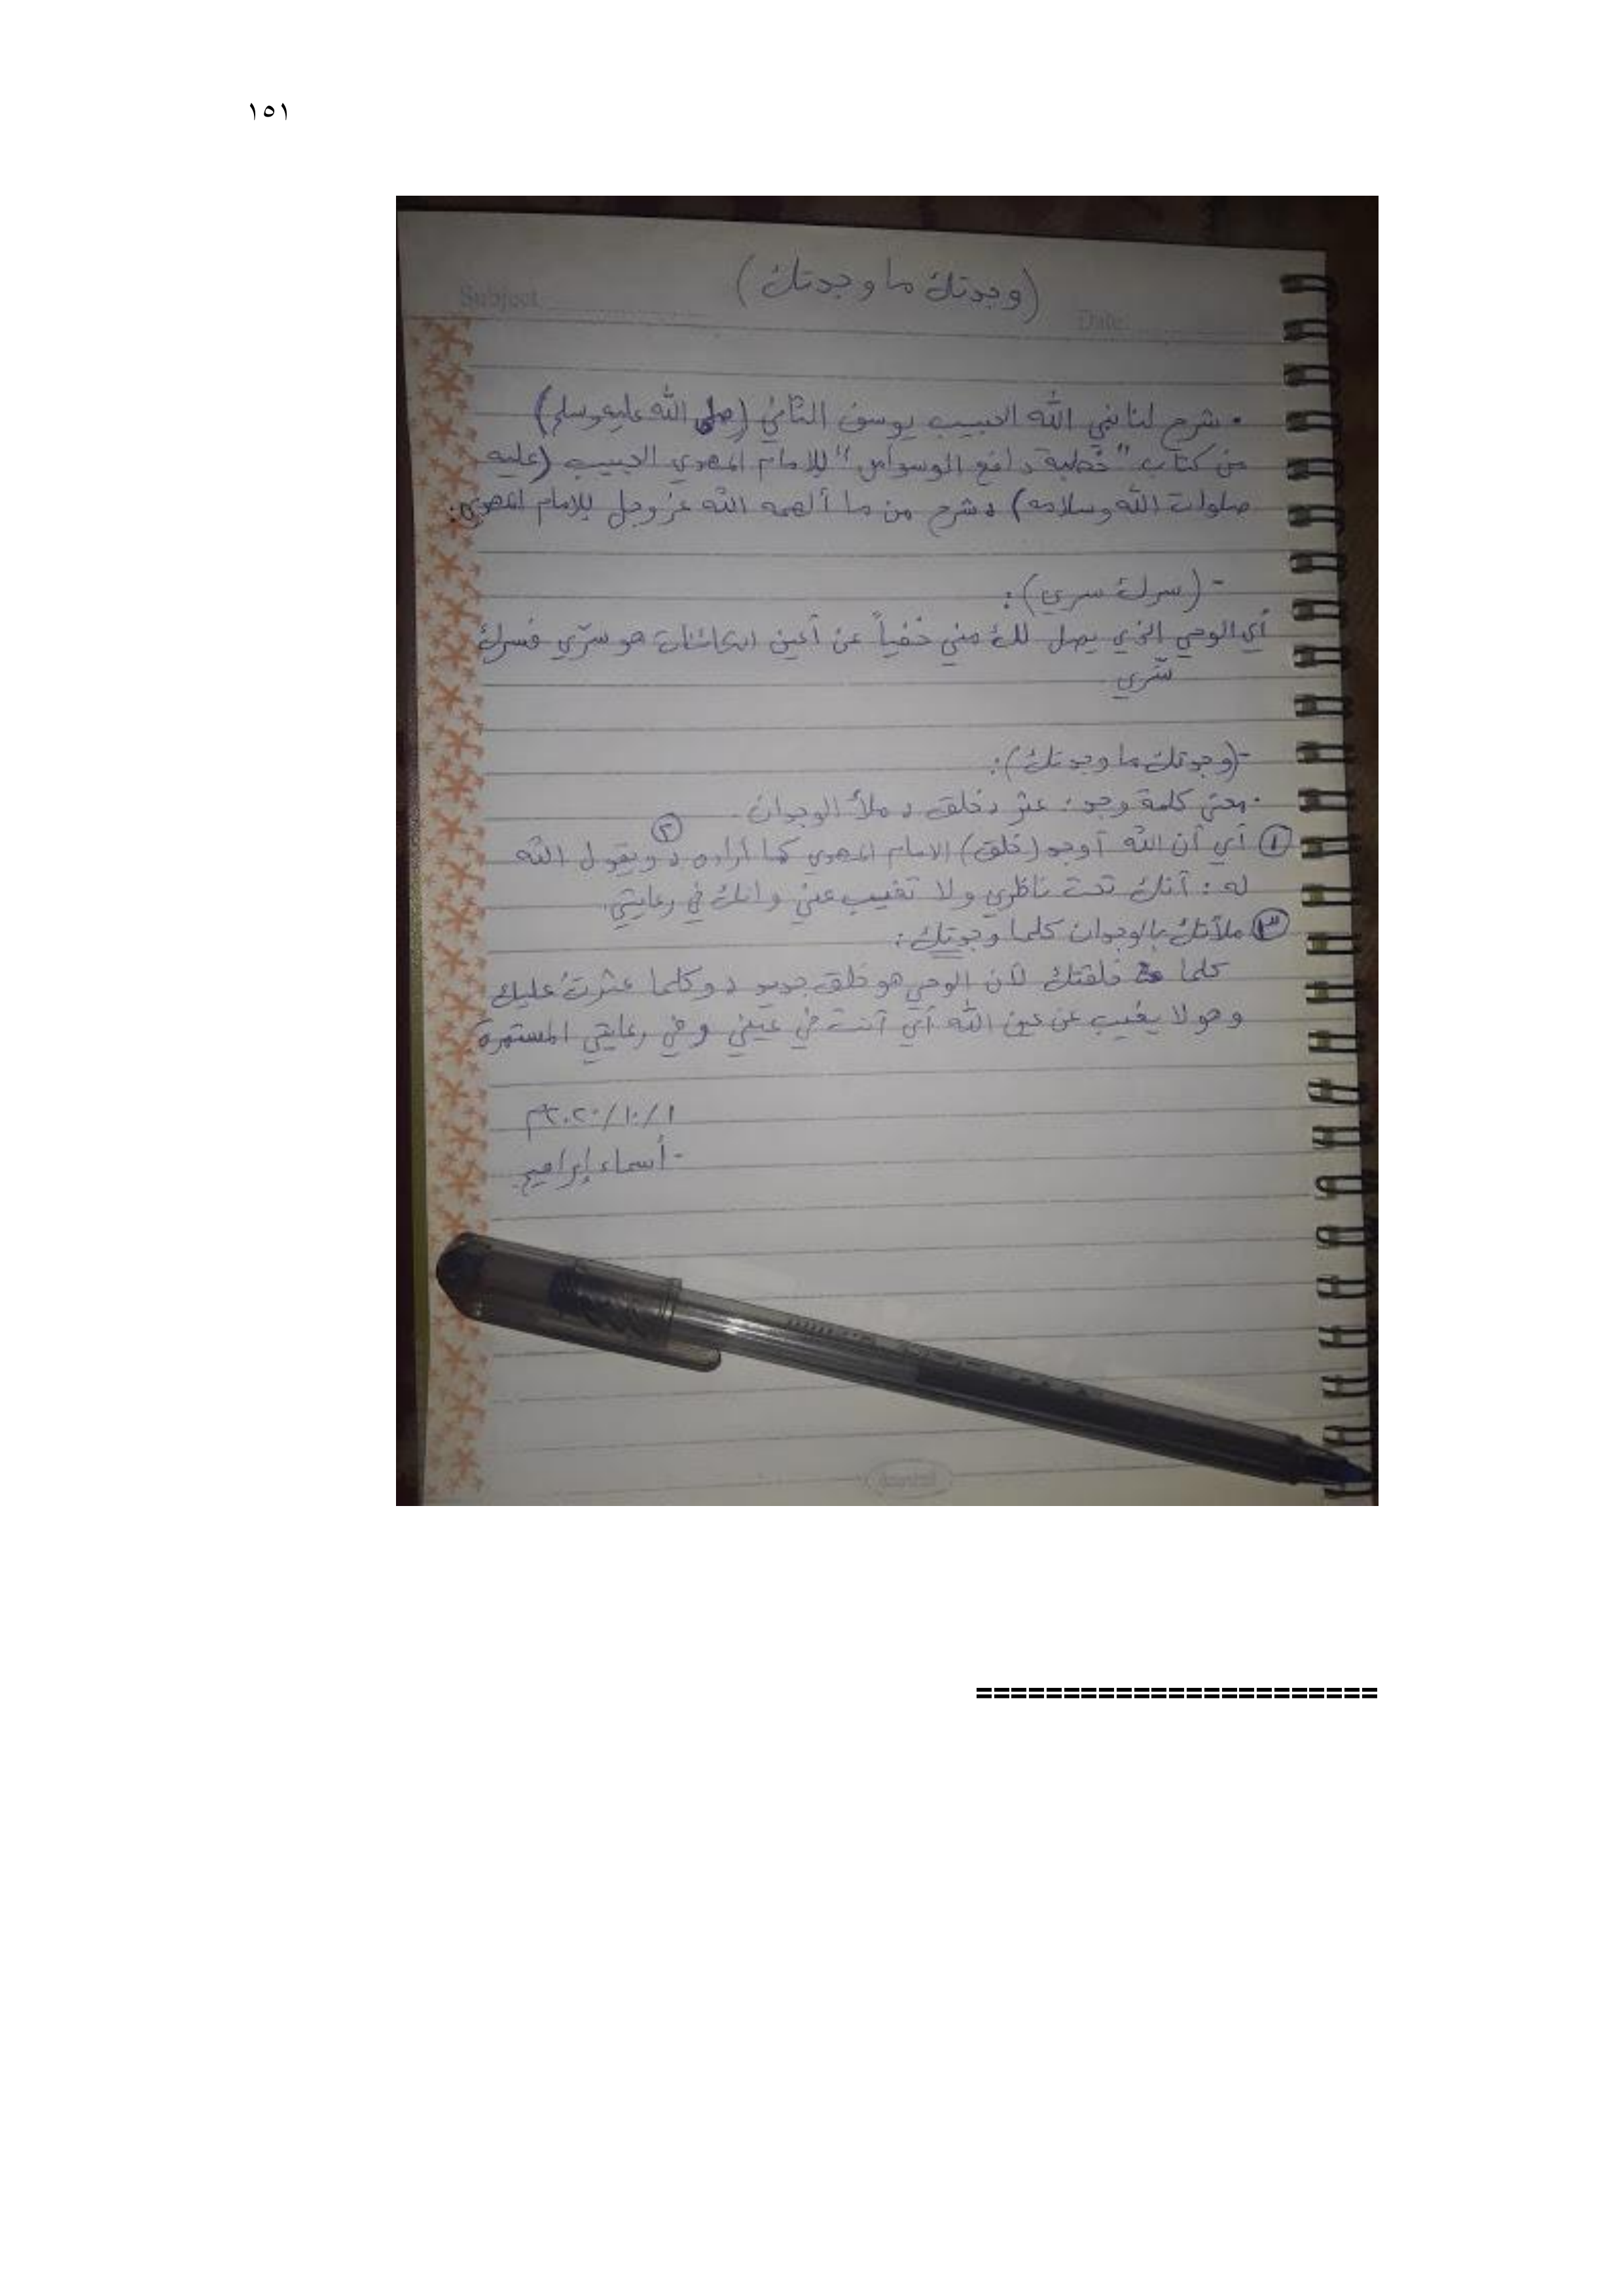 ١٥١
(وجدتك ما وجدتك)
Subject
Date:
• شرح لنا نبي الله الحبيب يوسف الثاني (صلى الله عليه وسلم)
من كتاب "خطبة دافع الوسواس" للإمام المهدي الحبيب (عليه
صلوات الله وسلامه) ، شرح من ما ألهمه الله عز وجل للإمام المهدي:
- (سرك سري):
أي الوحي الذي يصل لك مني خفياً عن أعين الكائنات هو سرّي فسرك
سّري
- (وجدتك ما وجدتك):
• معنى كلمة وجد: عثر ، خلق ، ملأ الوجدان.
① أي أن الله أوجد (خلق) الامام المهدي كما أراده ، ② ويقول الله
له: أنك تحت ناظري ولا تغيب عني وانك في رعايتي.
③ ملأتك بالوجدان كلما وجدتك:
كلما خلقتك لأن الوحي هو خلق جديد ، وكلما عثرتُ عليك
وهو لا يغيب عن عين الله أي أنت في عيني وفي رعايتي المستمرة
١/١٠/٢٠٢٠م
- أسماء إبراهيم
=======================